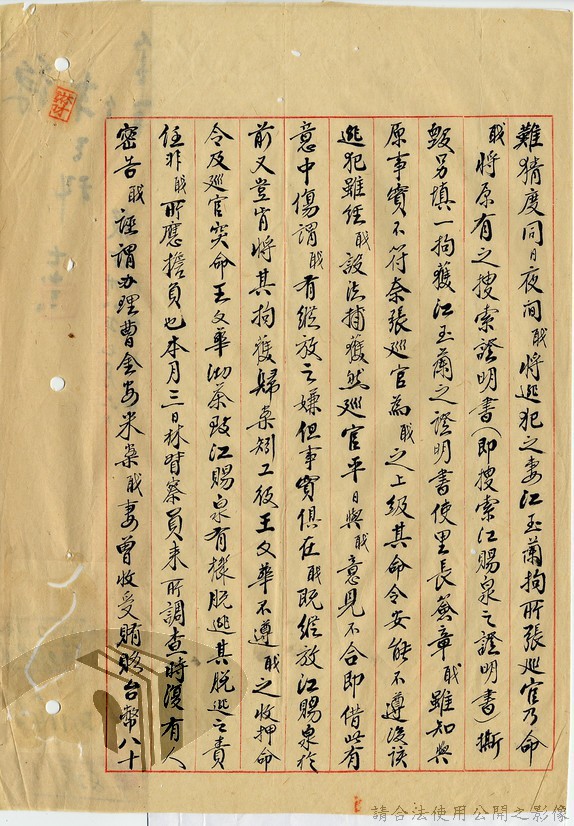 難猜度同日夜間職將逃犯之妻江玉蘭拘所張巡官乃命
職將原有之搜索證明書(即搜索江賜泉之證明書)撕
毀另填一拘獲江玉蘭之證明書使里長蓋章職雖知與
原事實不符奈張巡官為職之上級其命令安能不遵後該
逃犯雖經職設法捕獲然巡官平日與職意見不合即借此有
意中傷謂職有縱放之嫌但事實俱在職既縱放江賜泉於
前又豈肯將其拘獲歸案矧工役王文華不遵職之收押命
令及巡官突命王文華沏茶致江賜泉有機脫逃其脫逃之責
任非職所應擔負也本月三日林督察員來所調查時復有人
密告職誣謂办理曹金安米案職妻曾收受賄賂台幣八十
請合法使用公開之影像